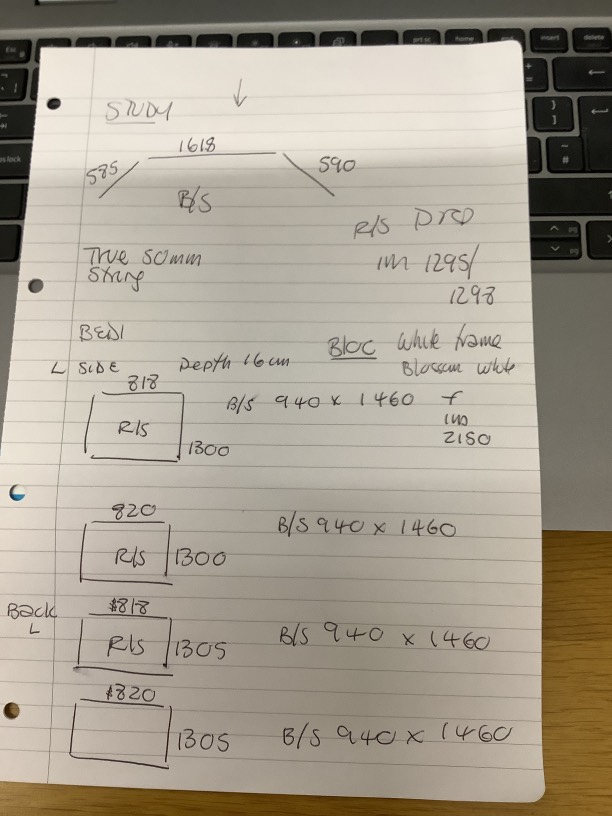 STUDY
1618
585
590
B/S
R/S
True 50mm
String
1295/
1298
BED1
L SIDE
Depth 16cm
Bloc
White frame
Blossom white
818
R/S
1300
B/S 940 x 1460
2150
820
R/S
1300
B/S 940 x 1460
Back
L
818
R/S
1305
B/S 940 x 1460
820
1305
B/S 940 x 1460